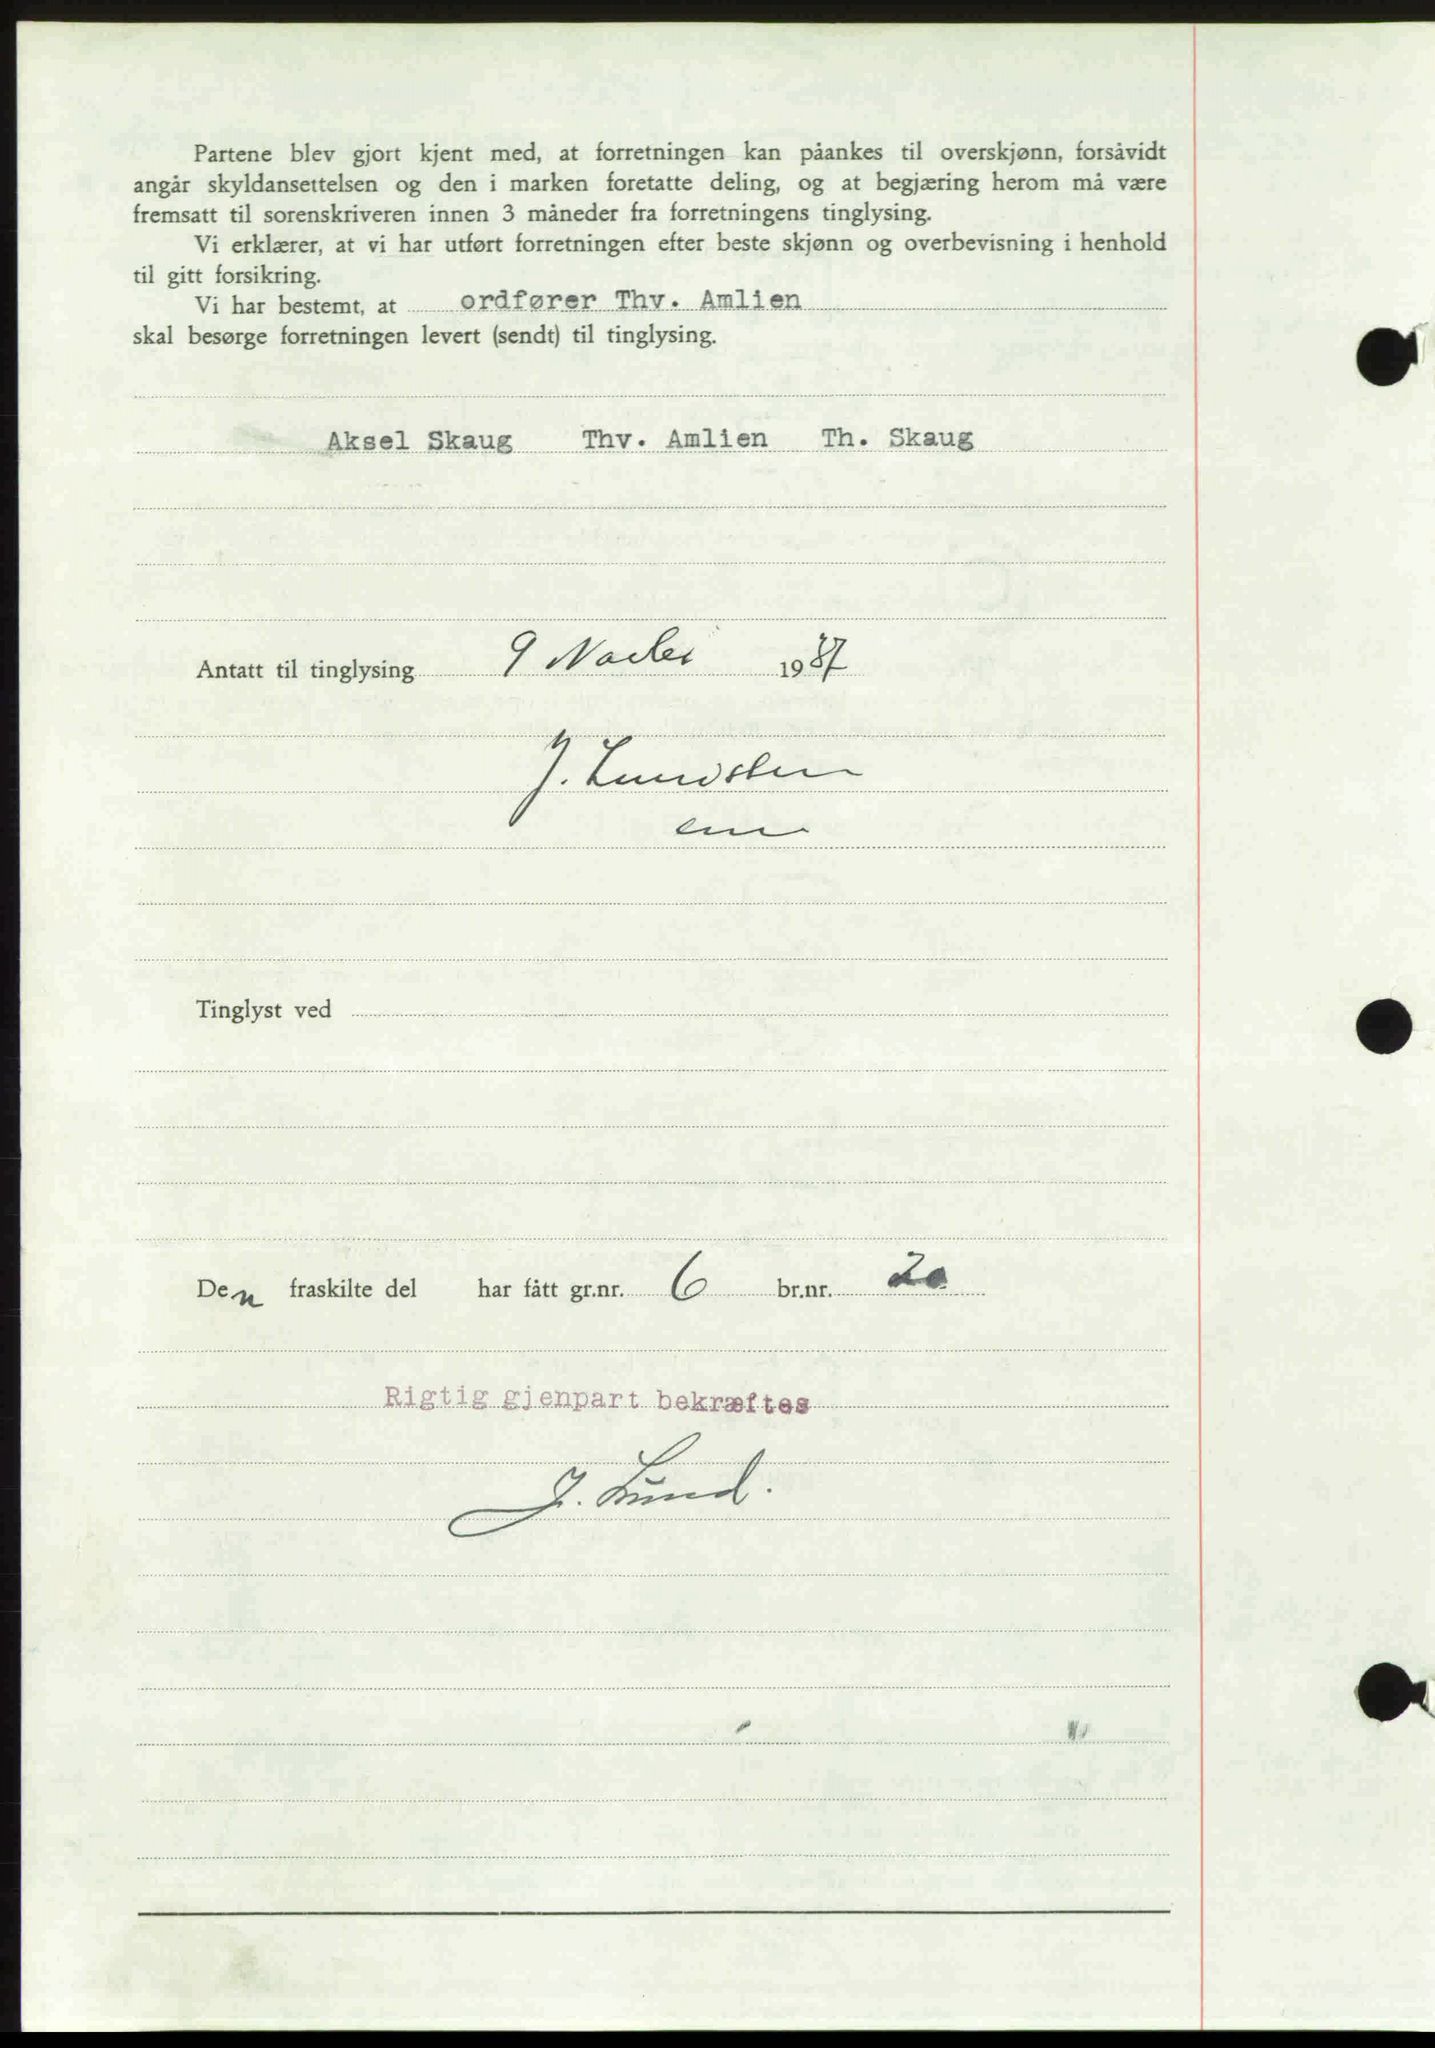 Partene blev gjort kjent med, at forretningen kan påankes til overskjønn, forsåvidt
angår skyldansettelsen og den i marken foretatte deling, og at begjæring herom må være
fremsatt til sorenskriveren innen 3 måneder fra forretningens tinglysing.
Vi erklærer, at vi har utført forretningen efter beste skjønn og overbevisning i henhold
til gitt forsikring.
Vi har bestemt, at ordfører Thv. Amlien
skal besørge forretningen levert (sendt) til tinglysing.
Aksel Skaug Thv. Amlien Th. Skaug
Antatt til tinglysing 9 1937
J.
Tinglyst ved
Den fraskilte del har fått gr.nr. 6 br.nr. 20
Rigtig gjenpart bekræftes
J. Lund.